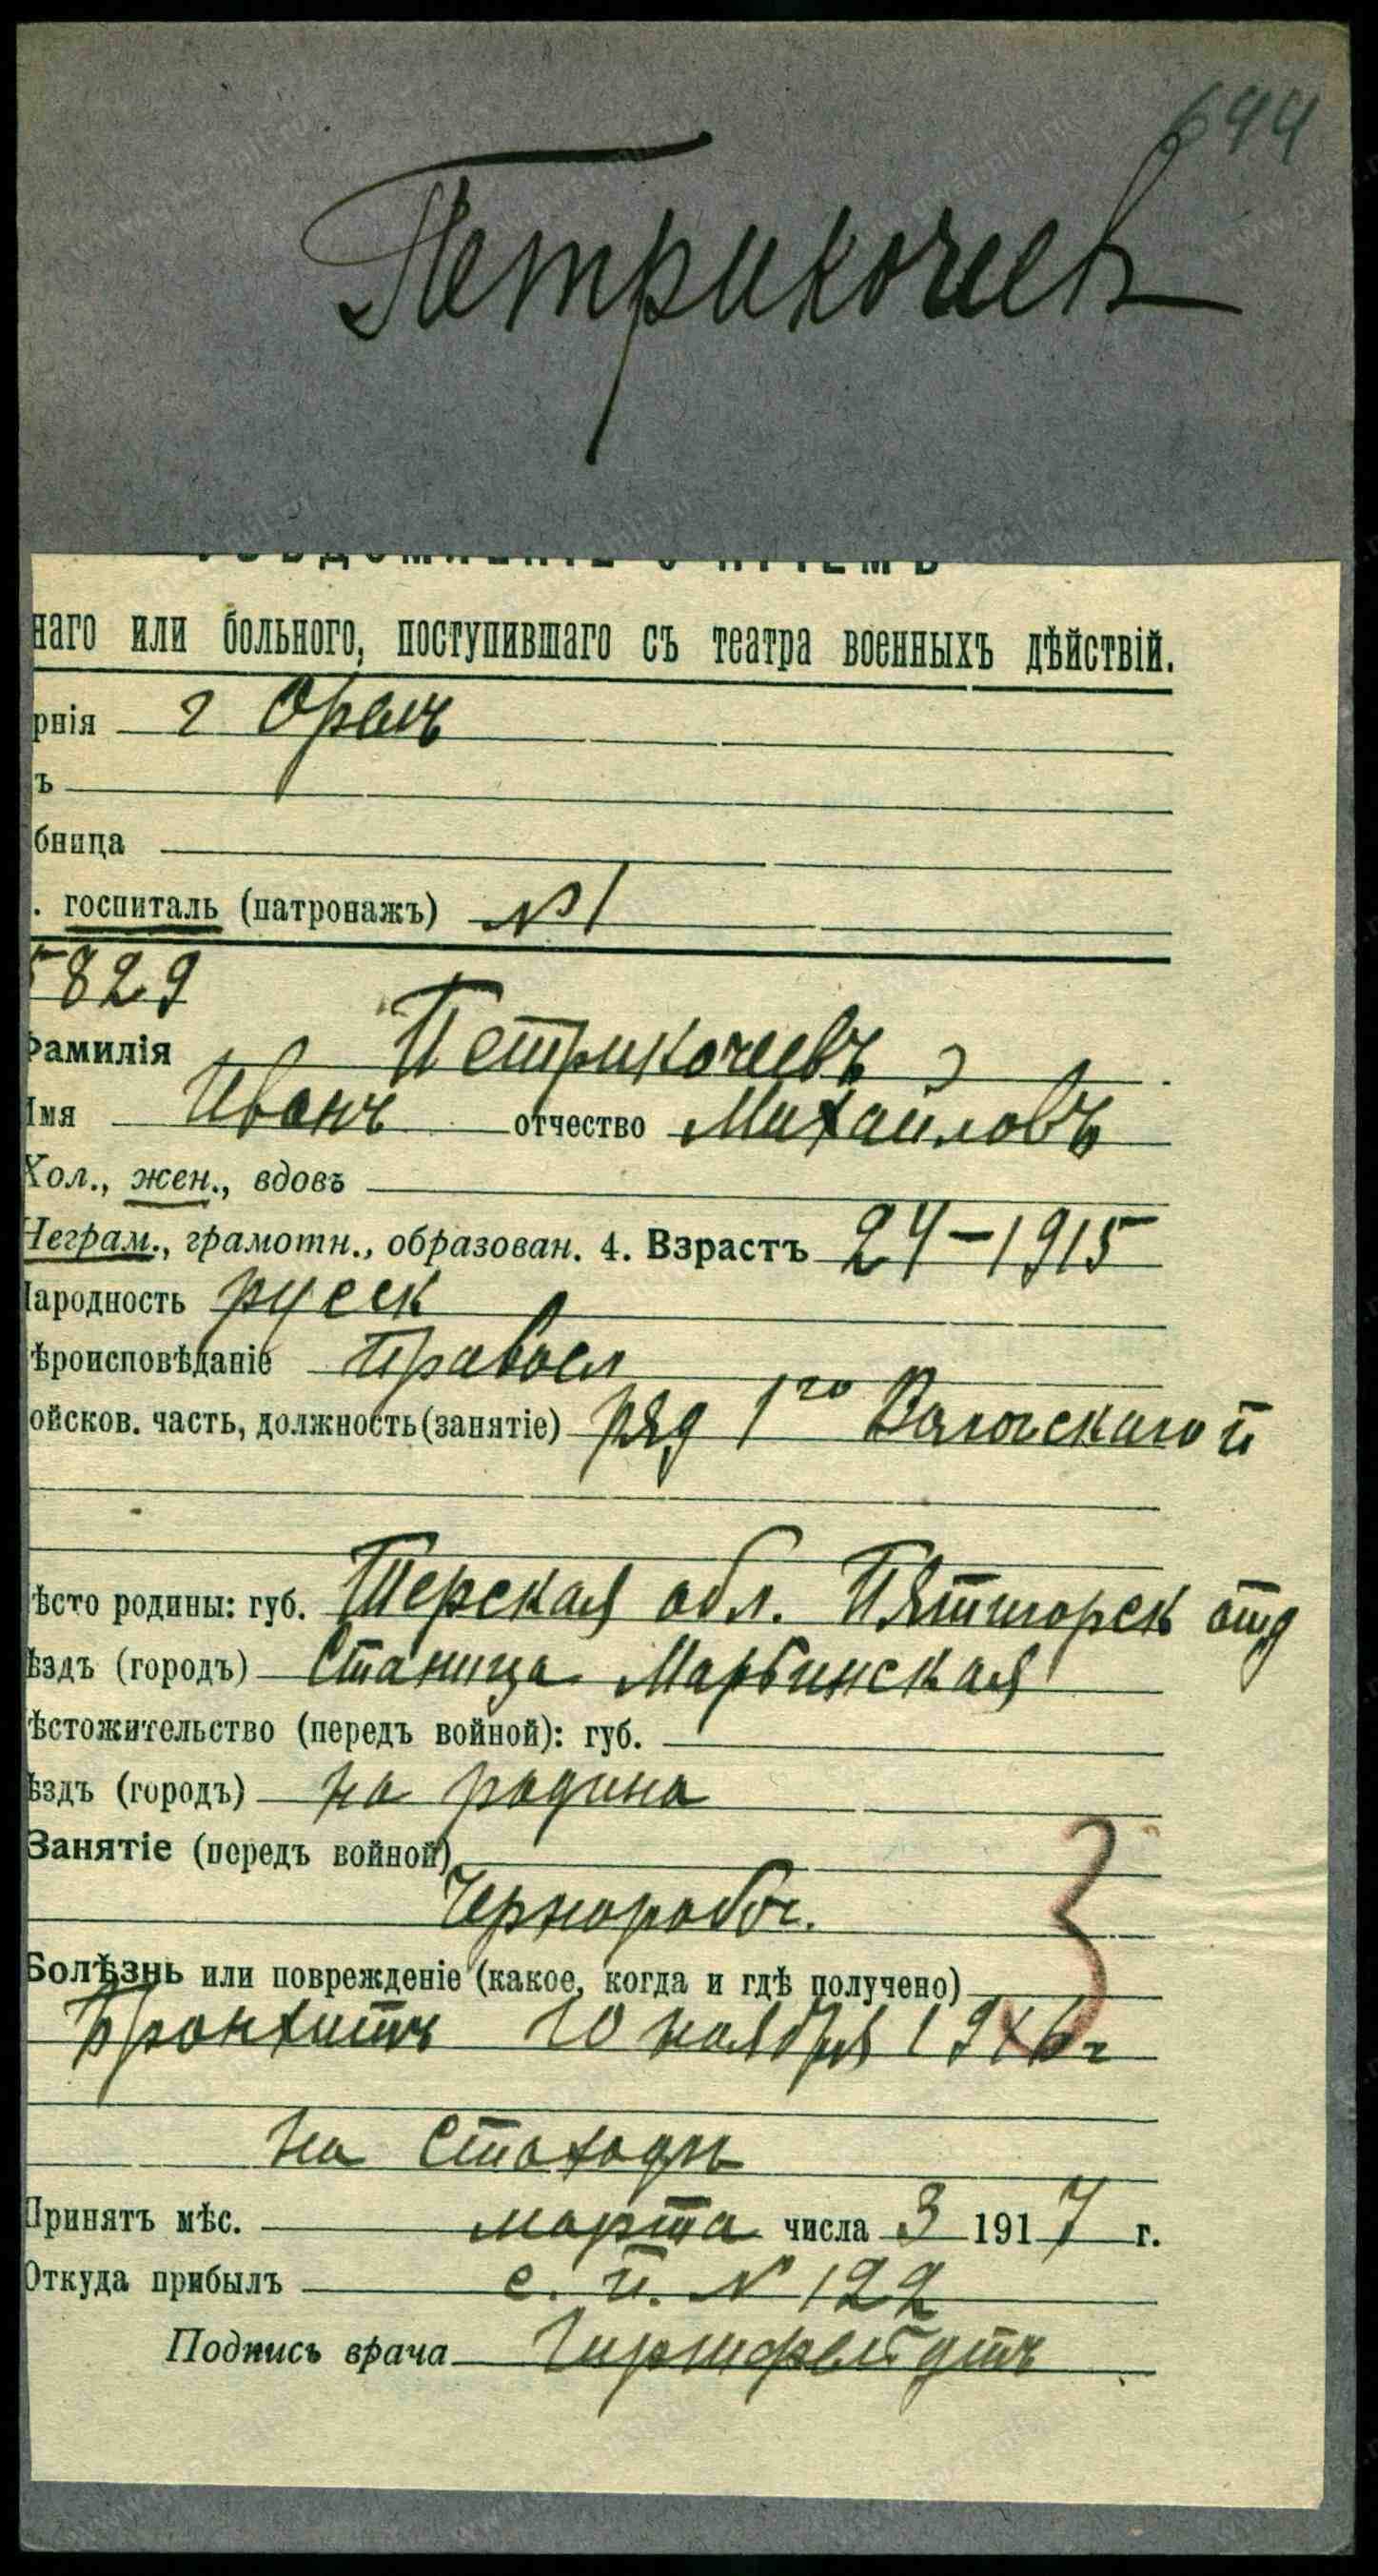 699
Петрикочев
наго или больного, поступившаго съ театра военныхъ дѣйствій.
рнія г Орелъ
ъ
бница
. госпиталь (патронажъ) №1
5829
Фамилія Петрикочеевъ
Имя Иванъ отчество Михайловъ
Хол., жен., вдовъ
Неграм., грамотн., образован. 4. Взрастъ 24-1915
Народность русск
ѣроисповѣданіе правосл
ойсков. часть, должность (занятіе) ряд 1го п
ѣсто родины: губ. Терская обл. Пятигорск отд
ѣздъ (городъ) Станица Марьинская
ѣстожительство (передъ войной): губ.
ѣздъ (городъ) на родина
Занятіе (передъ войной)
Чернорабоч.
Болѣзнь или поврежденіе (какое, когда и гдѣ получено)
Бронхитъ 10 ноября 1916 г
на Стоходѣ
Принятъ мѣс. марта числа 3 1917 г.
Откуда прибылъ с. п. № 122
Подпись врача